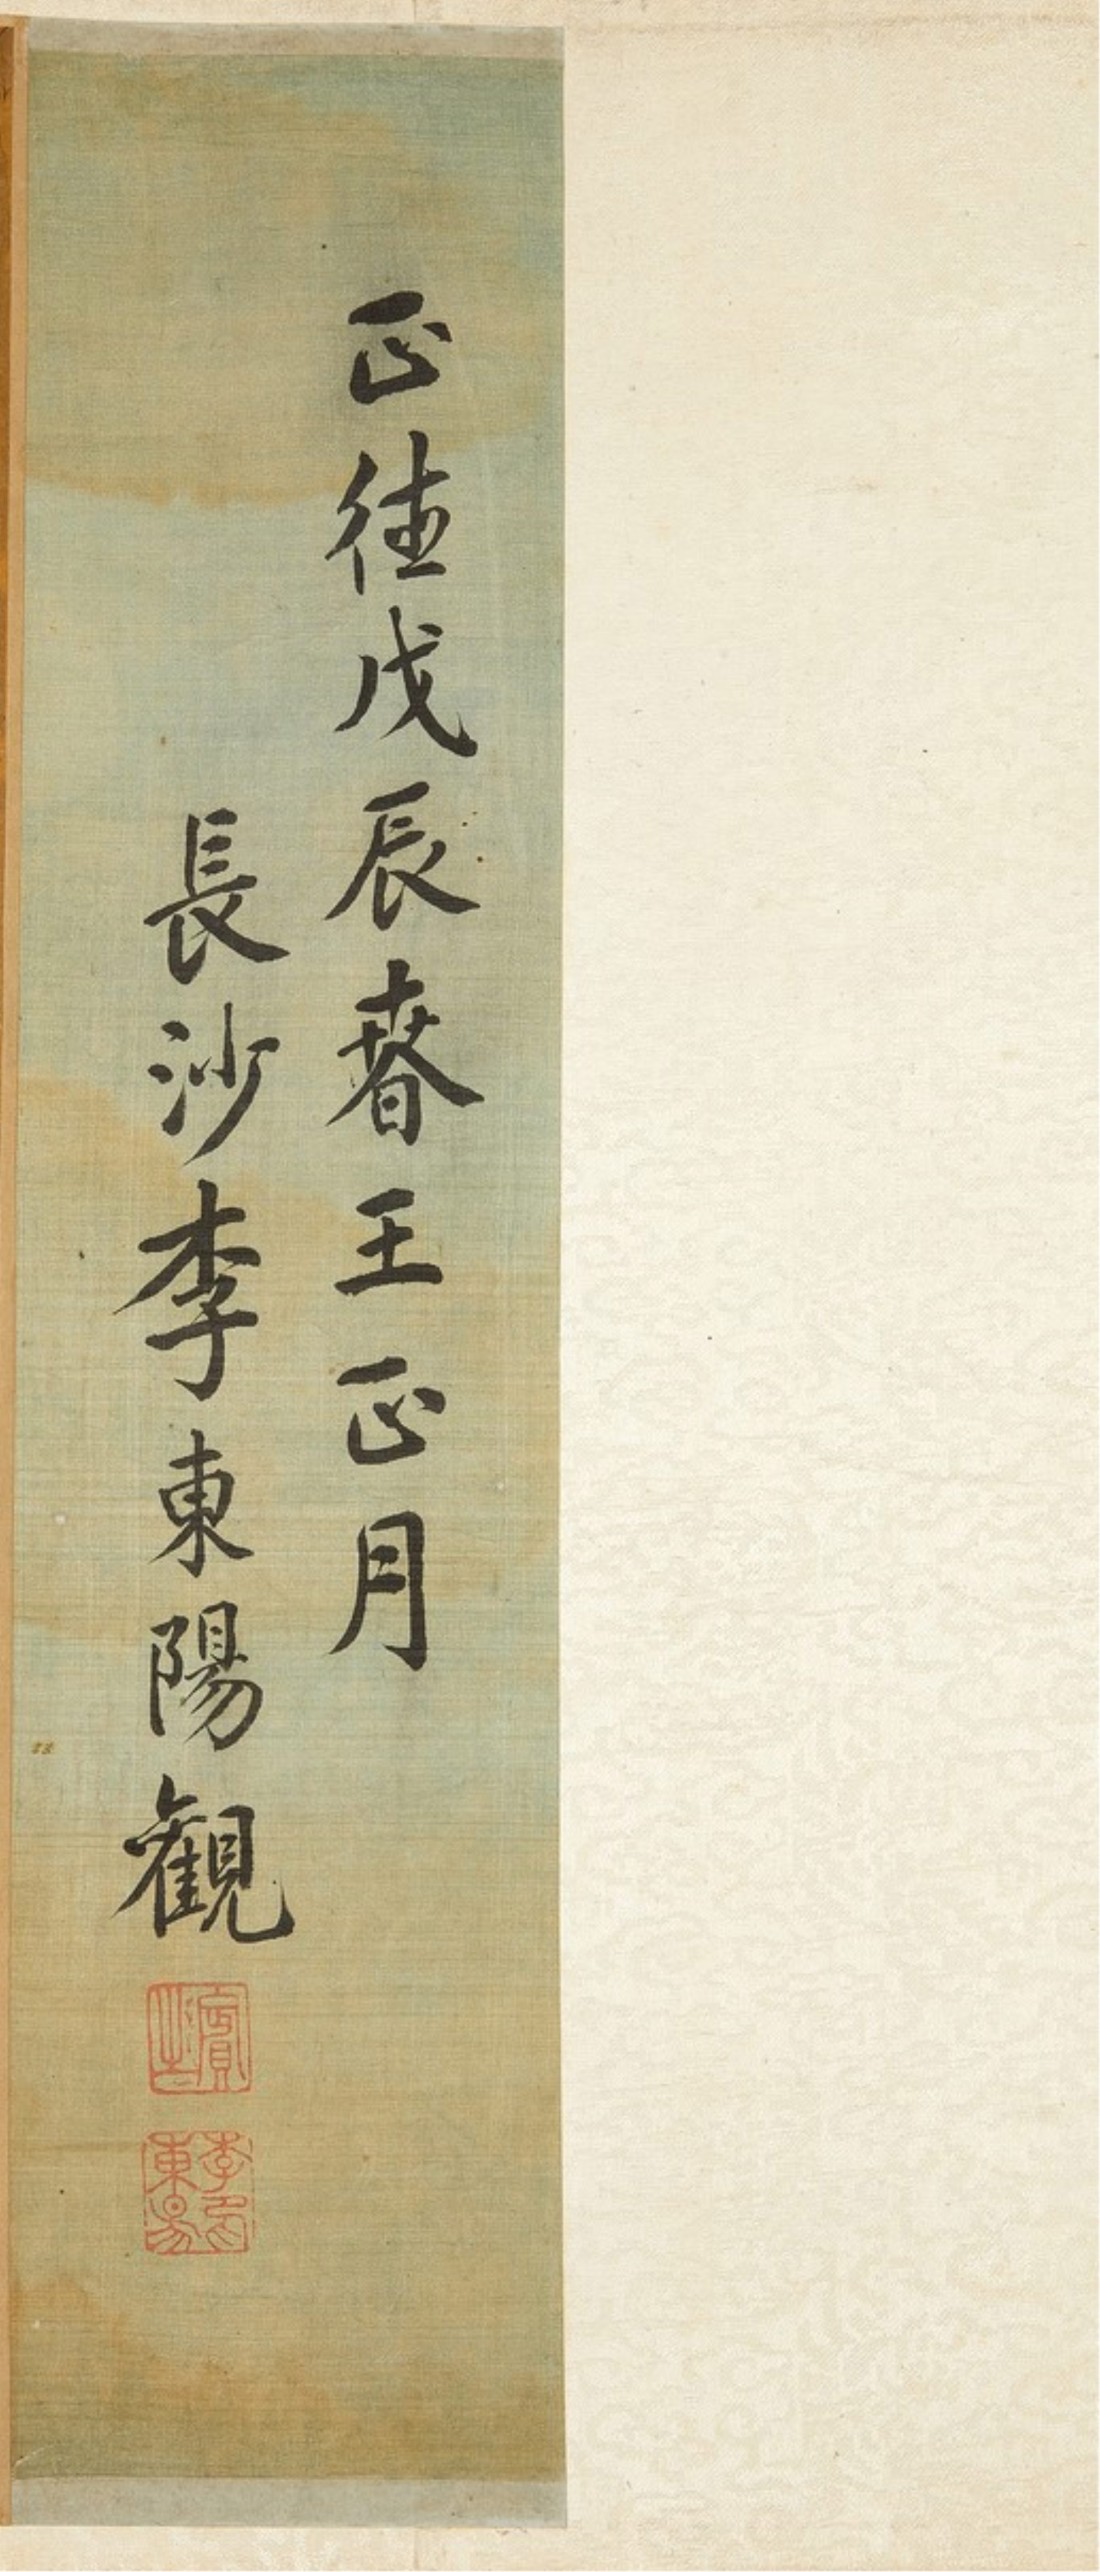 正德戊辰春王正月
長沙李東陽觀
賓之
李印東昜